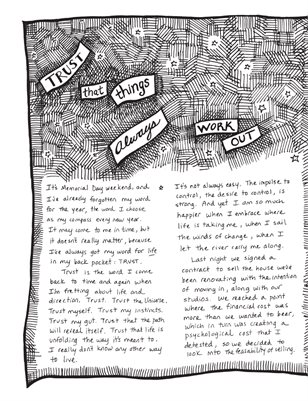 TRUST
that things
Always
WORK
OUT
It's Memorial Day weekend, and
I've already forgotten my word
for the year, the word I choose
as my compass every new year.
It may come to me in time, but
it doesn't really matter, because
I've always got my word for life
in my back pocket: TRUST.
Trust is the word I come
back to time and again when
I'm fretting about life and
direction. Trust. Trust the Universe.
Trust myself. Trust my instincts.
Trust my gut. Trust that the path
will reveal itself. Trust that life is
unfolding the way it's meant to.
I really don't know any other way
to live.
It's not always easy. The impulse to
control, the desire to control, is
strong. And yet I am so much
happier when I embrace where
life is taking me, when I sail
the winds of change, when I
let the river carry me along.
Last night we signed a
contract to sell the house we've
been renovating with the intention
of moving in, along with our
studios. We reached a point
where the financial cost was
more than we wanted to bear,
which in turn was creating a
psychological cost that I
detested, so we decided to
look into the feasibility of selling.